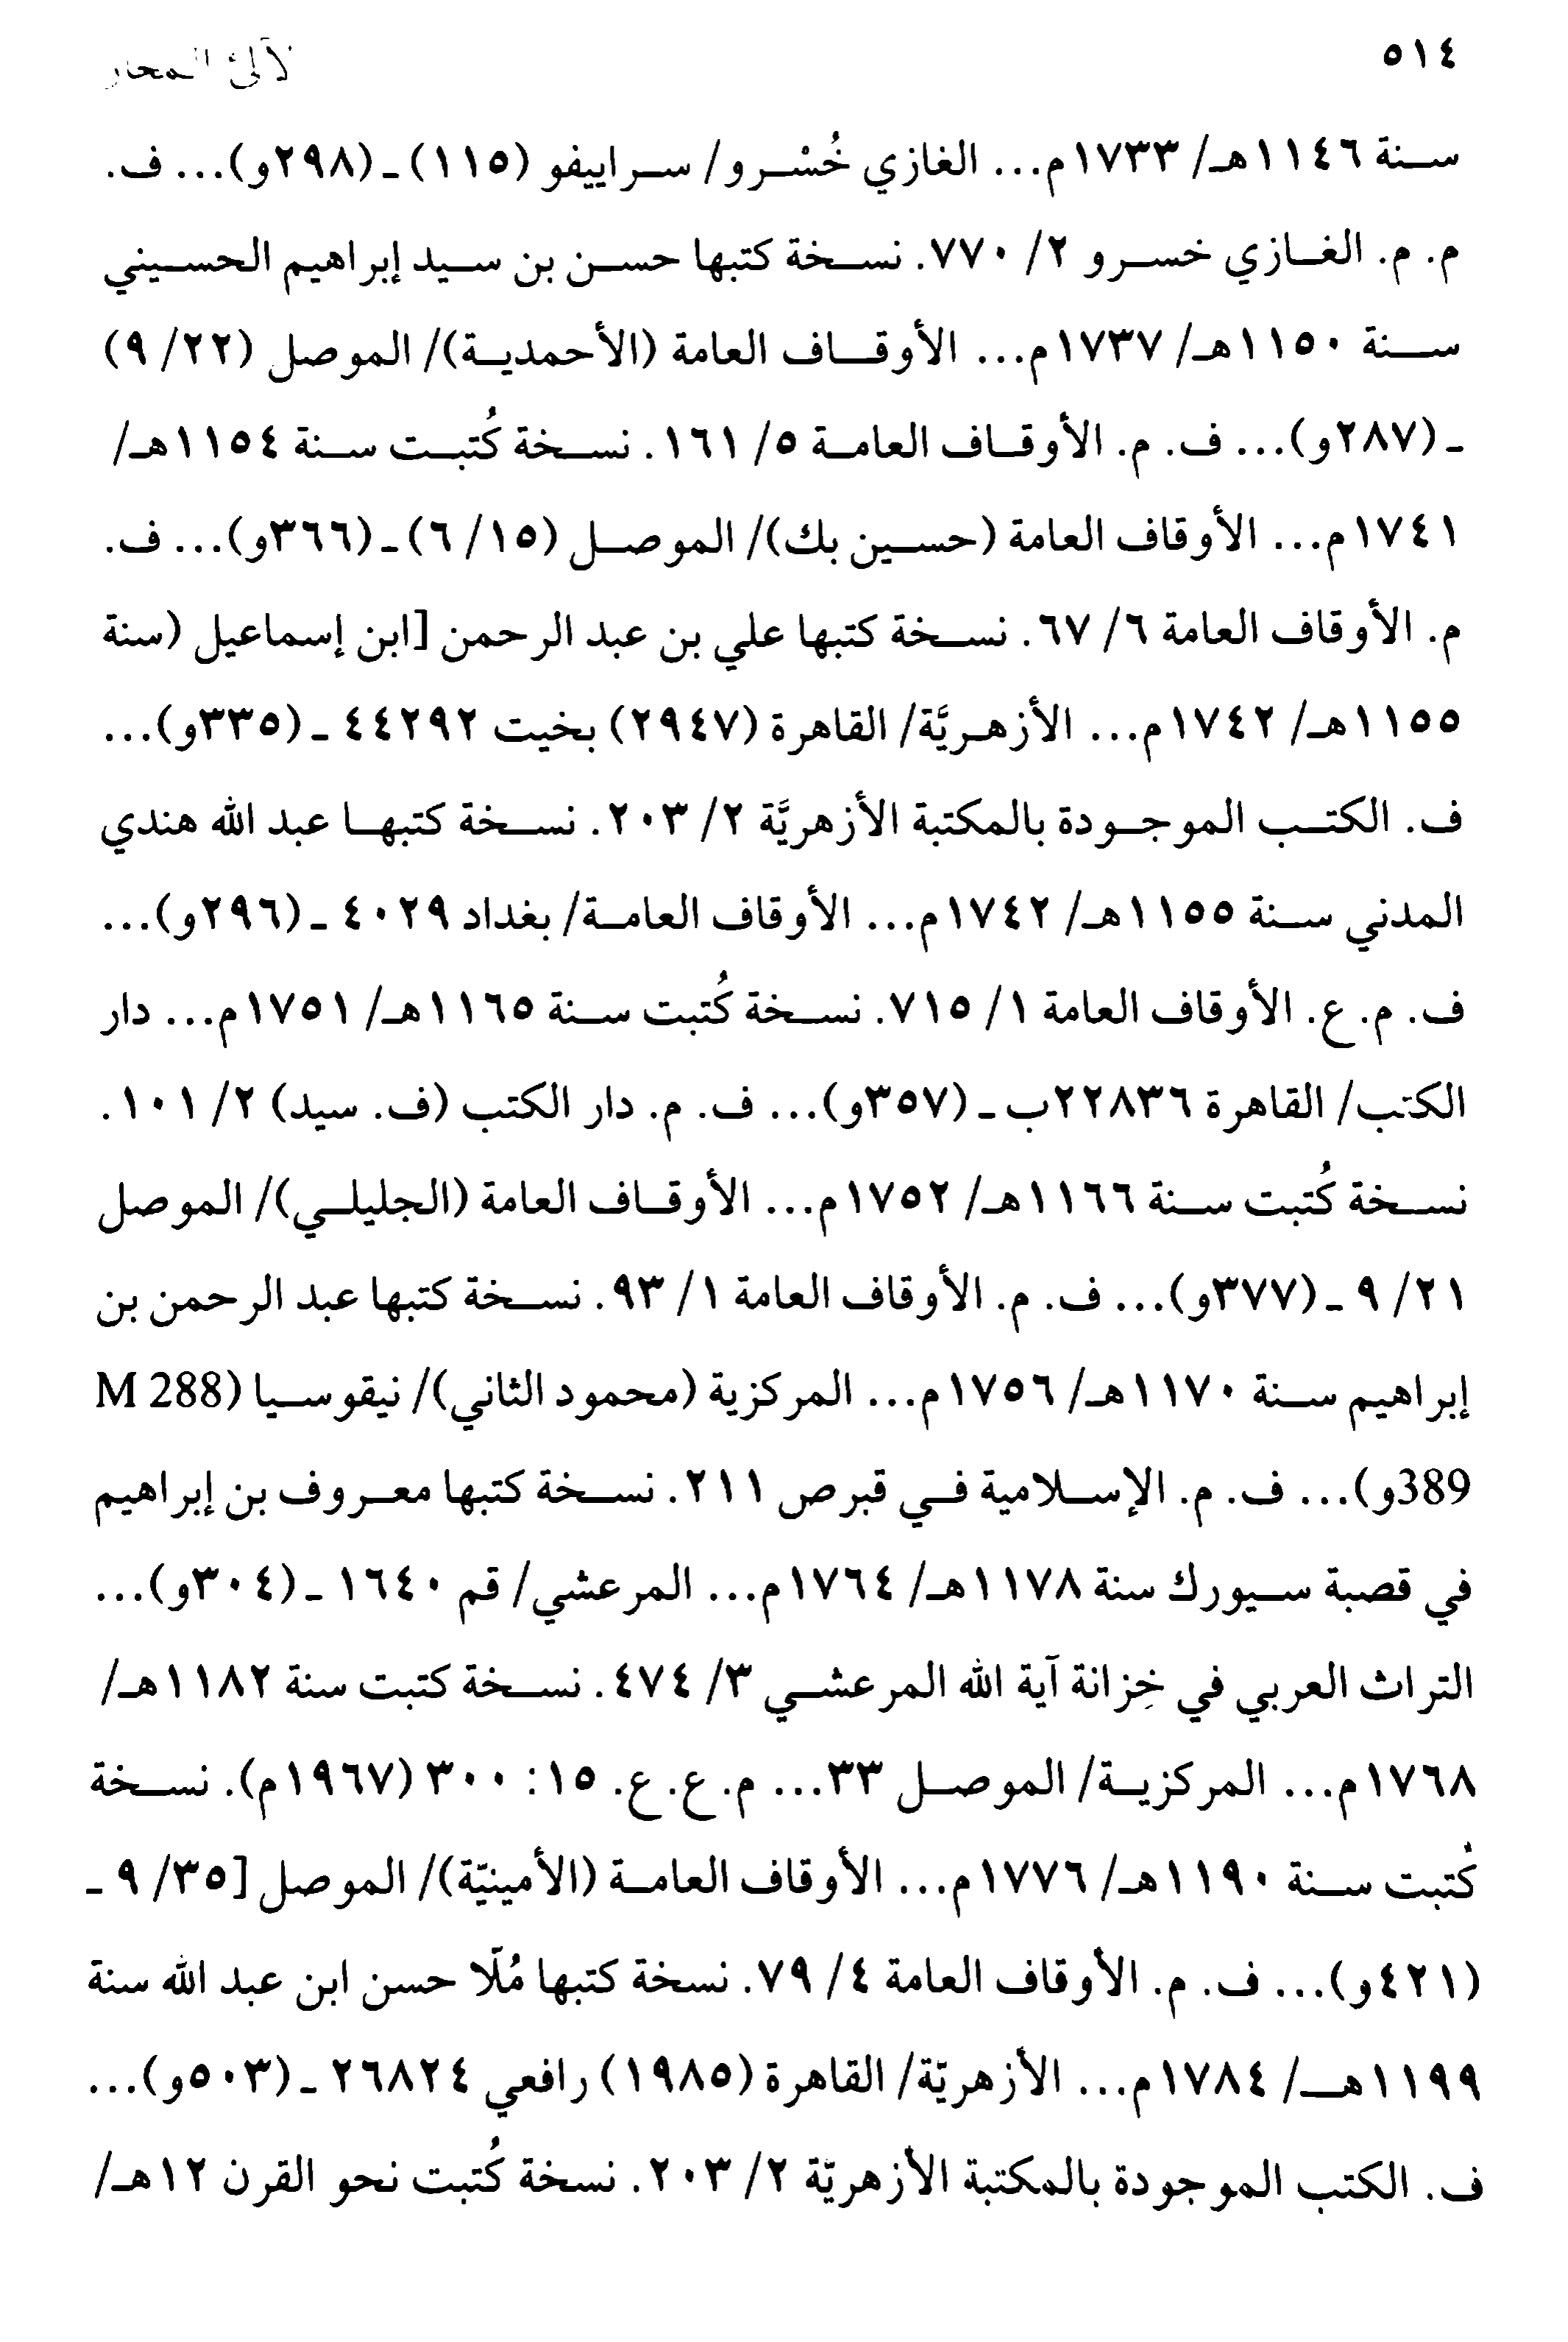 ٥١٤
لآلئ المحار
سنة ١١٤٦هـ/ ١٧٣٣م... الغازي خُسْرو/ سراييفو (١١٥) ـ (٢٩٨و)... ف.
م. م. الغازي خسرو ٢/ ٧٧٠. نسخة كتبها حسن بن سيد إبراهيم الحسيني
سنة ١١٥٠هـ/ ١٧٣٧م... الأوقاف العامة (الأحمدية)/ الموصل (٢٢/ ٩)
ـ (٢٨٧و)... ف. م. الأوقاف العامة ٥/ ١٦١. نسخة كُتبت سنة ١١٥٤هـ/
١٧٤١م... الأوقاف العامة (حسين بك)/ الموصل (١٥/ ٦) ـ (٣٦٦و)... ف.
م. الأوقاف العامة ٦/ ٦٧. نسخة كتبها علي بن عبد الرحمن [ابن إسماعيل (سنة
١١٥٥هـ/ ١٧٤٢م... الأزهريَّة/ القاهرة (٢٩٤٧) بخيت ٤٤٢٩٢ ـ (٣٣٥و)...
ف. الكتب الموجودة بالمكتبة الأزهريَّة ٢/ ٢٠٣. نسخة كتبها عبد الله هندي
المدني سنة ١١٥٥هـ/ ١٧٤٢م... الأوقاف العامة/ بغداد ٤٠٢٩ ـ (٢٩٦و)...
ف. م. ع. الأوقاف العامة ١/ ٧١٥. نسخة كُتبت سنة ١١٦٥هـ/ ١٧٥١م... دار
الكتب/ القاهرة ٢٢٨٣٦ب ـ (٣٥٧و)... ف. م. دار الكتب (ف. سيد) ٢/ ١٠١.
نسخة كُتبت سنة ١١٦٦هـ/ ١٧٥٢م... الأوقاف العامة (الجليلي)/ الموصل
٢١/ ٩ ـ (٣٧٧و)... ف. م. الأوقاف العامة ١/ ٩٣. نسخة كتبها عبد الرحمن بن
إبراهيم سنة ١١٧٠هـ/ ١٧٥٦م... المركزية (محمود الثاني)/ نيقوسيا (M 288
389و)... ف. م. الإسلامية في قبرص ٢١١. نسخة كتبها معروف بن إبراهيم
في قصبة سيورك سنة ١١٧٨هـ/ ١٧٦٤م... المرعشي/ قم ١٦٤٠ ـ (٣٠٤و)...
التراث العربي في خِزانة آية الله المرعشي ٣/ ٤٧٤. نسخة كتبت سنة ١١٨٢هـ/
١٧٦٨م... المركزية/ الموصل ٣٣... م. ع. ع. ١٥: ٣٠٠ (١٩٦٧م). نسخة
كُتبت سنة ١١٩٠هـ/ ١٧٧٦م... الأوقاف العامة (الأمينيّة)/ الموصل [٣٥/ ٩ ـ
(٤٢١و)... ف. م. الأوقاف العامة ٤/ ٧٩. نسخة كتبها مُلّا حسن ابن عبد الله سنة
١١٩٩هـ/ ١٧٨٤م... الأزهريّة/ القاهرة (١٩٨٥) رافعي ٢٦٨٢٤ ـ (٥٠٣و)...
ف. الكتب الموجودة بالمكتبة الأزهريّة ٢/ ٢٠٣. نسخة كُتبت نحو القرن ١٢هـ/